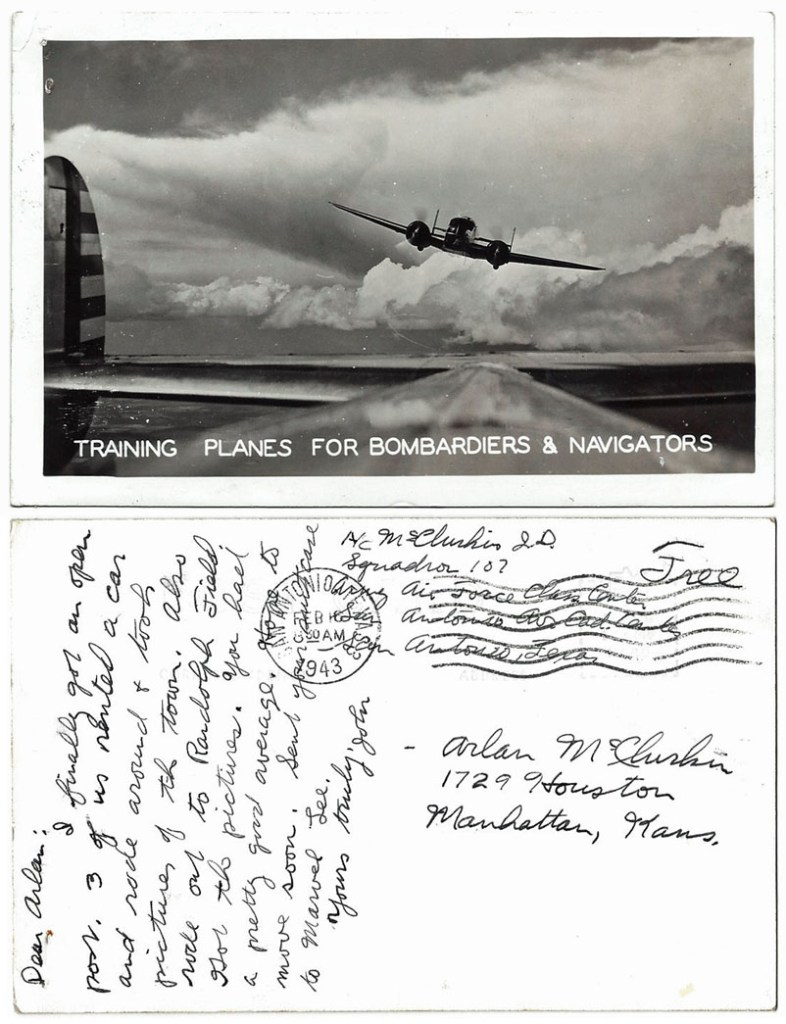 TRAINING PLANES FOR BOMBARDIERS & NAVIGATORS
Dear Arlan:
I finally got an open
post. 3 of us rented a car
and rode around & took
pictures of the town. Also
rode out to Randolph Field.
Got the pictures. You had
a pretty good average. Hope to
move soon. Sent your suitcase
to Marvel Lee.
Yours truly, John
A/C McClurkin J.D.
Squadron 107
Army Air Force Class Center
San Antonio Av. Cad. Center
San Antonio, Texas
Free
SAN ANTONIO, TEXAS
FEB 16
30 AM
1943
Arlan McClurkin
1729 Houston
Manhattan, Kans.